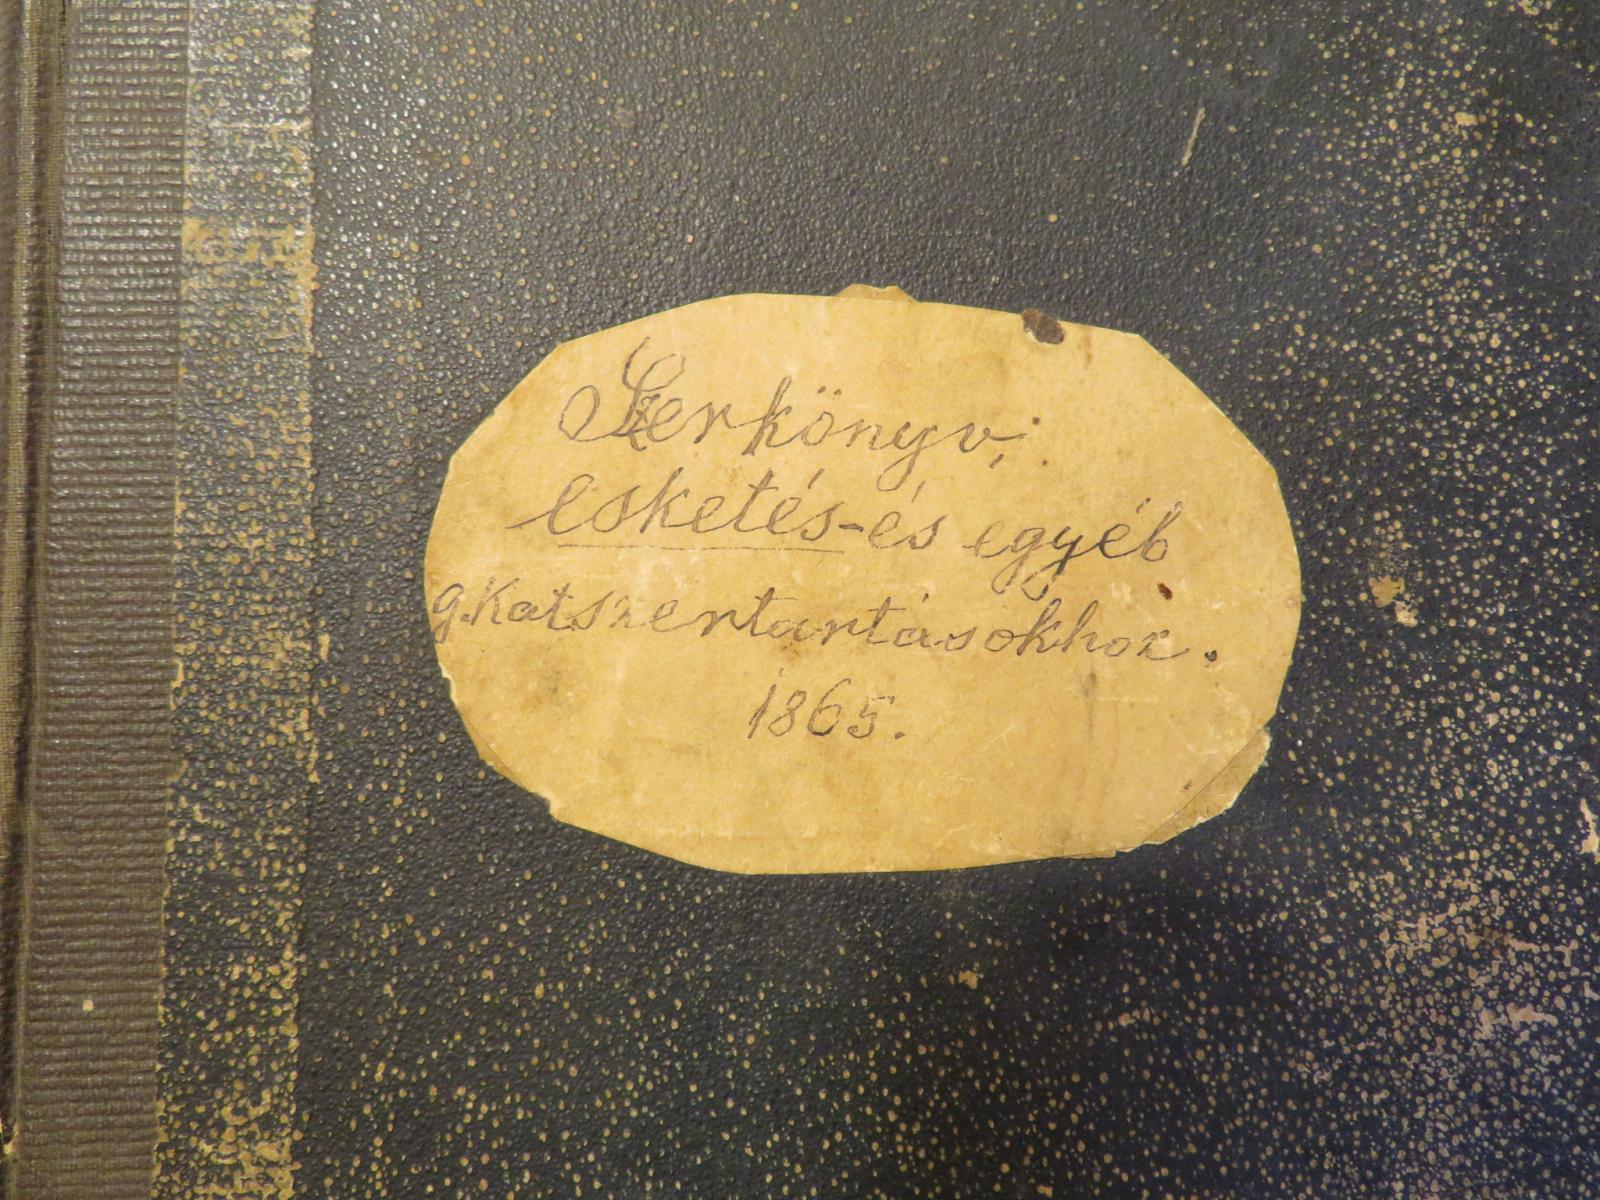 Szerkönyv;
esketés-és egyéb
g.Katszertartásokhoz.
1865.